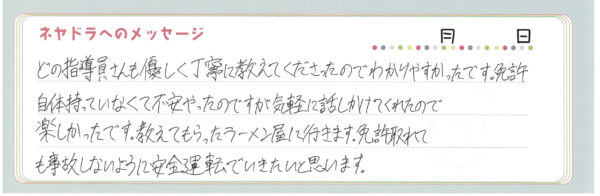 ネヤドラへのメッセージ
月 日
どの指導員さんも優しく丁寧に教えてくださったのでわかりやすかったです。免許
自体持っていなくて不安やったのですが気軽に話しかけてくれたので
楽しかったです。教えてもらったラーメン屋に行きます。免許取れて
も事故しないように安全運転でいきたいと思います。